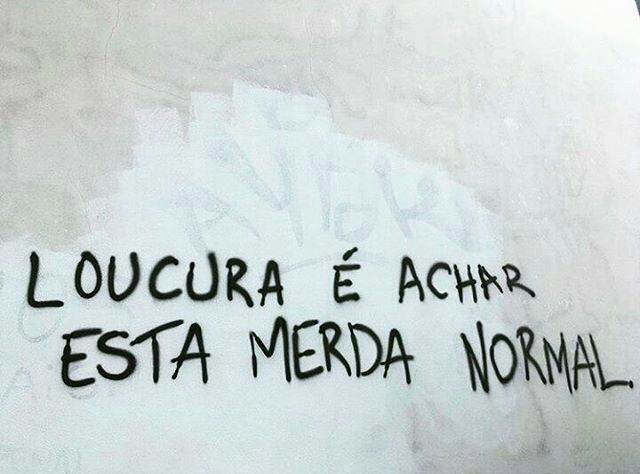 LOUCURA É ACHAR
ESTA MERDA NORMAL.